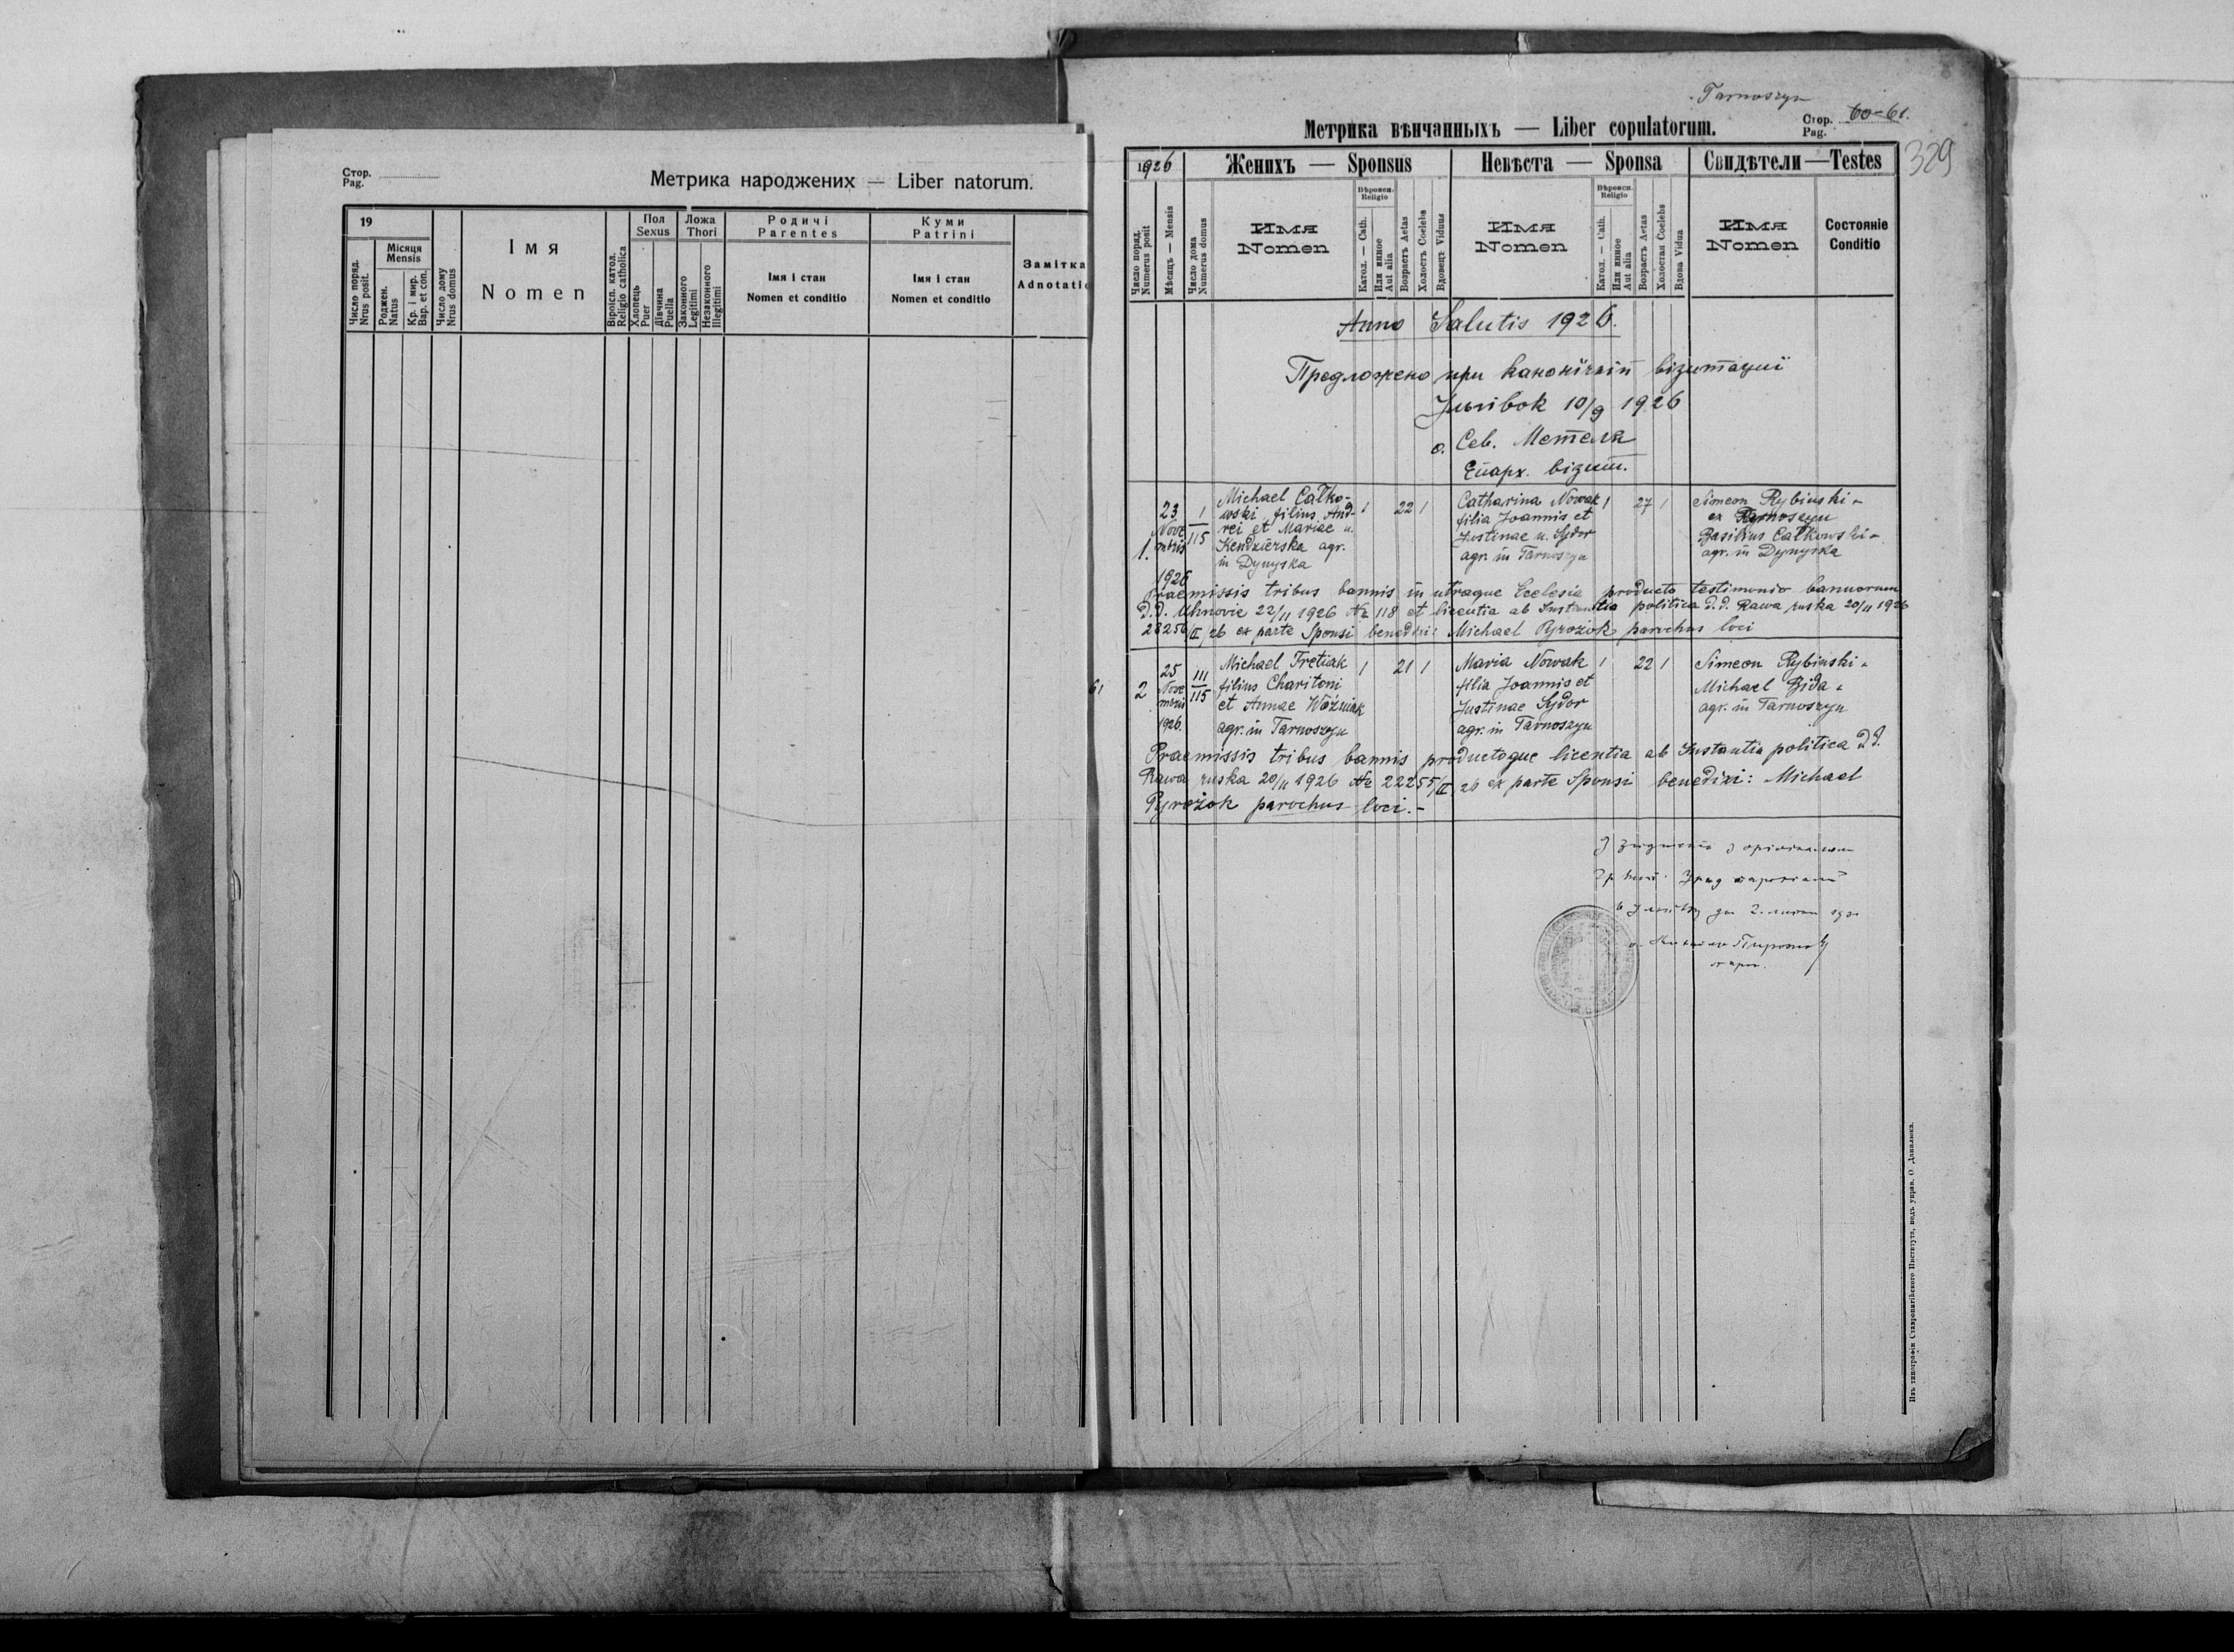 Стор.
Pag.
Метрика народжених — Liber natorum.
19
Число поряд.
Nrus posit.
Місяця
Mensis
Роджен.
Natus
Кр. і мир.
Bap. et con.
Число дому
Nrus domus
Імя
Nomen
Віроісп. катол.
Religio catholica
Пол
Sexus
Хлопець
Puer
Дівчина
Puella
Ложа
Thori
Законного
Legitimi
Незаконного
Illegitimi
Родичі
Parentes
Імя і стан
Nomen et conditio
Куми
Patrini
Імя і стан
Nomen et conditio
Замітка
Adnotatio
Tarnoszyn
Метрика вѣнчанныхъ — Liber copulatorum.
Стор.
Pag.
60-61.
329
1926
Женихъ — Sponsus
Невѣста — Sponsa
Свидѣтели — Testes
Число поряд.
Numerus posit
Мѣсяцъ — Mensis
Число дома
Numerus domus
Имя
Nomen
Вѣроисп.
Religio
Катол. — Cath.
Или инное
Aut alia
Возрастъ Aetas
Холостъ Coelebs
Вдовецъ Viduus
Имя
Nomen
Вѣроисп.
Religio
Катол. — Cath.
Или инное
Aut alia
Возрастъ Aetas
Холостая Coelebs
Вдова Vidua
Имя
Nomen
Состояніе
Conditio
Anno Salutis 1926.
Предложено при канонїчній візитациї
Улигівок 10/9 1926
о. Сев. Метеля
Епарх. візит.
1.
23
Nove
mbris
1926
1
115
Michael Całko-
wski filius And-
rei et Mariae n.
Kendzierska agr.
in Dynyska
1 22 1
Catharina Nowak
filia Joannis et
Justinae n. Sydor
agr. in Tarnoszyn
1 27 1
Simeon Rybinski -
ex Tarnoszyn
Basilius Całkowski -
agr. in Dynyska
Praemissis tribus bannis in utraque Ecclesia producto testimonio bannorum
d.d. Uhnovie 22/11 1926 № 118 et licentia ab Instantia politica d.d. Rawa ruska 20/11 1926
28256/II, 26 ex parte Sponsi benedixi: Michael Pyrożok parochus loci
61
2
25
Nove
mbris
1926.
111
115
Michael Tretiak
filius Charitoni
et Annae Woźniak
agr. in Tarnoszyn
1 21 1
Maria Nowak
filia Joannis et
Justinae Sydor
agr. in Tarnoszyn
1 22 1
Simeon Rybinski -
Michael Bida -
agr. in Tarnoszyn
Praemissis tribus bannis productoque licentia ab Instantia politica d.d.
Rawa ruska 20/11 1926 № 22255/II, 26 ex parte Sponsi benedixi: Michael
Pyrożok parochus loci. -
Изъ типографіи Ставропигійского Института, подъ управ. О. Данилюка.